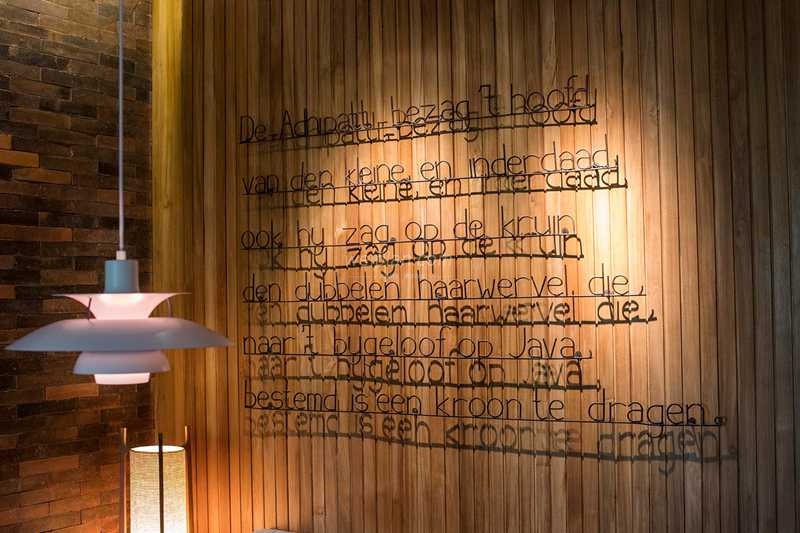 De Adhipatti bezag 't hoofd
van den kleine, en inderdaad,
ook hy zag op de kruin
den dubbelen haarwervel, die,
naar 't bygeloof op Java,
bestemd is een kroon te dragen.